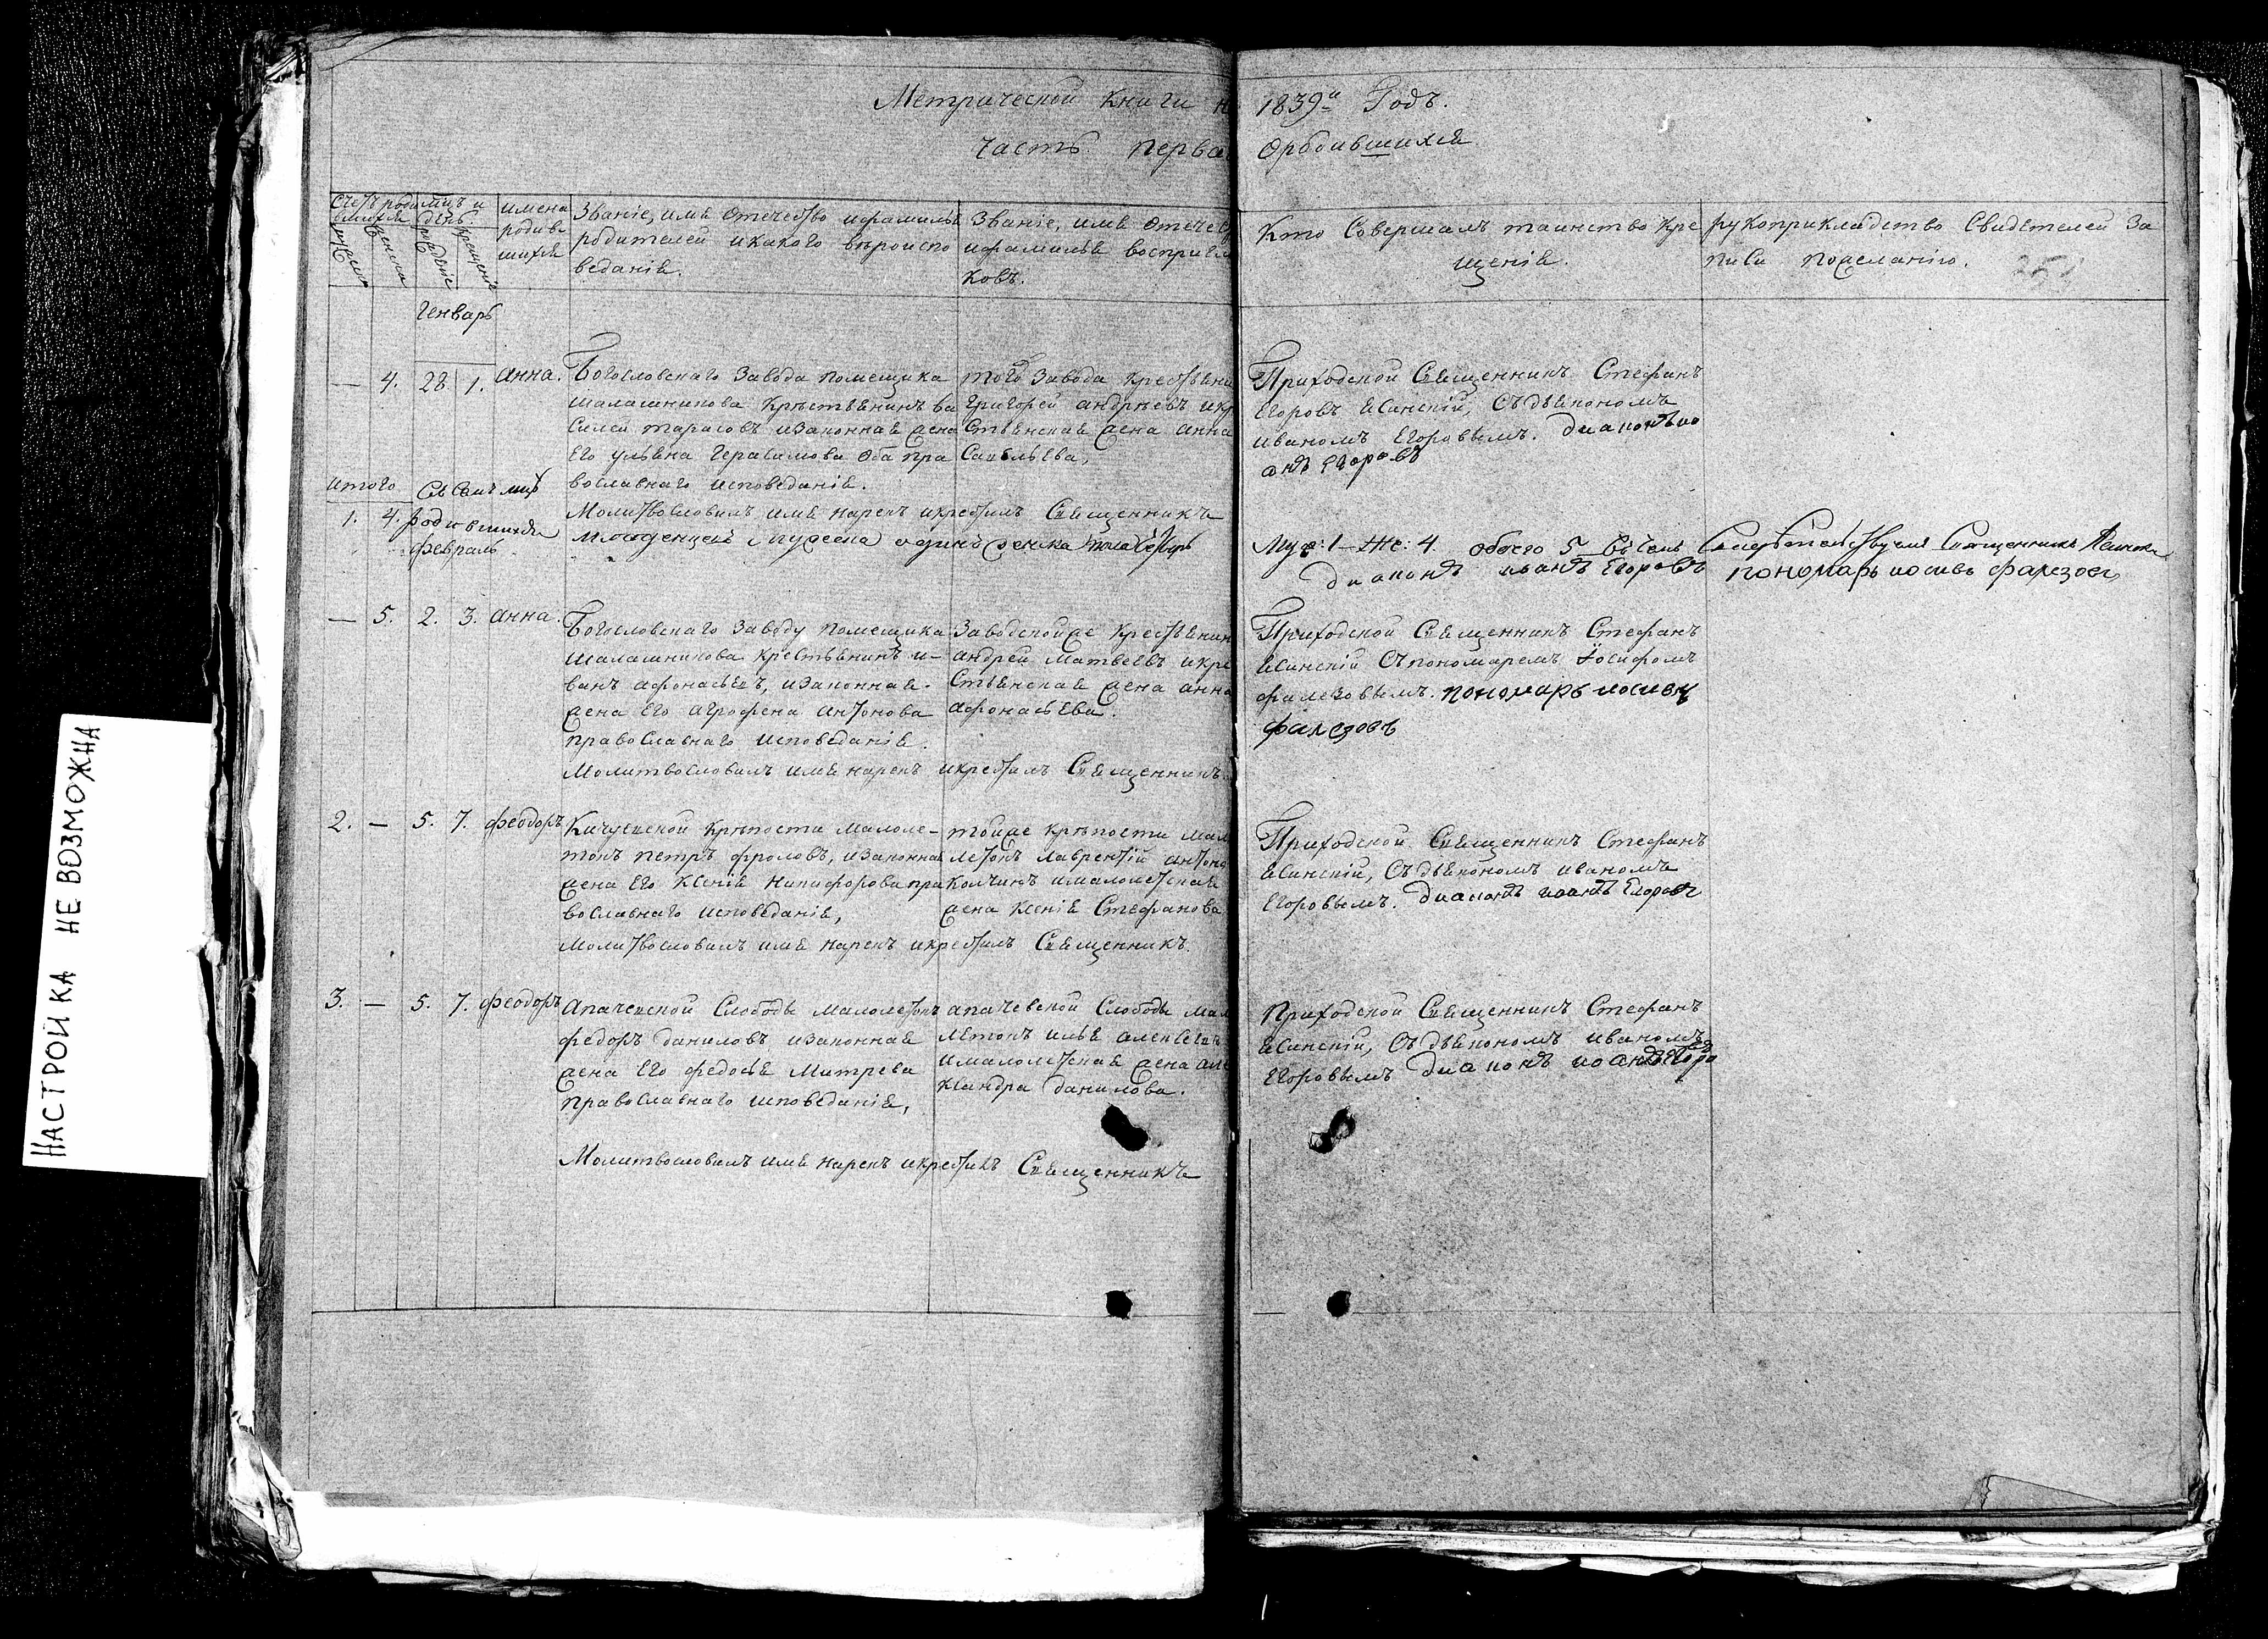 Метрической книги н
Часть перва
1839й Годъ.
Орѳдившихся
Счетъ родив
шихся
мужеска
женска
мць и
день.
рожденіе
крещеніе
имена
родив
шихся
Званіе, имя отечество ифамилья
родителей икакого вѣроиспо
веданія.
Званіе, имя отечес
ифамилья воспріем
ковъ.
Кто Совершалъ таинство кре
щенія.
рукоприкладство Свидѣтелей За
писи пожеланію.
Генварь
— 4. 28 1. анна.
Богословскаго Завода помещика
шалашникова Крестьянинъ ва
силей тарасовъ изаконная жена
Его ульяна Герасимова оба пра
вославнаго исповеданія.
Молитвословилъ имя нарекъ икрестилъ Священникъ
того завода крестьяни
григорей андреевъ икр
Стьянская жена анна
Савельева,
Приходской Священникъ Стефанъ
Егоровъ Ясинскій, Съдьякономъ
иваномъ Егоровымъ. диаконъ ио
анъ Егоровъ
итого
1. 4. родившихся
младенцевъ мужеска одинъ женска
Муж: 1 — Же: 4. обоего 5
Священникъ
диаконъ иоанъ Егоровъ пономарь иосивъ фалезовъ
февраль
— 5. 2. 3. анна.
Богословскаго Заводу помещика
шалашникова крестьянинъ и-
ванъ афонасьевъ, изаконная
жена Его агрофена антонова
православнаго исповеданія.
Молитвословилъ имя нарекъ икрестилъ Священникъ
Заводскойже Крестьянин
андрей Матвеевъ икре
Стьянская жена анна
афонасьева.
Приходской Священникъ Стефанъ
Ясинскій Съпономаремъ Іосифомъ
фалезовымъ. пономарь иосивъ
фалезовъ
2. — 5. 7. феодоръ
Кичуевской Крѣпости малоле-
токъ петръ фроловъ, изаконная
жена Его Ксенія Никифорова пра
вославнаго исповеданія,
Молитвословилъ имя нарекъ икрестилъ Священникъ.
тойже крѣпости мал
летокъ лаврентій антоно
Колчинъ ималолетская
жена ксенія Стефанова
Приходской Священникъ Стефанъ
Ясинскій, Съдьякономъ иваномъ
Егоровымъ. диаконъ иоанъ Егоровъ
3. — 5. 7. феодоръ
Апачевской Слободы малолетокъ
федоръ даниловъ изаконная
жена Его федосья Митрева
православнаго исповеданія,
Молитвословилъ имя нарекъ икрестилъ Священникъ
апачевской Слободы мал
летокъ илья алексеевъ
ималолетская жена але
ксандра данилова.
Приходской Священникъ Стефанъ
Ясинскій, Съдьякономъ иваномъ
Егоровымъ диаконъ иоанъ Егоро
НАСТРОЙКА НЕ ВОЗМОЖНА